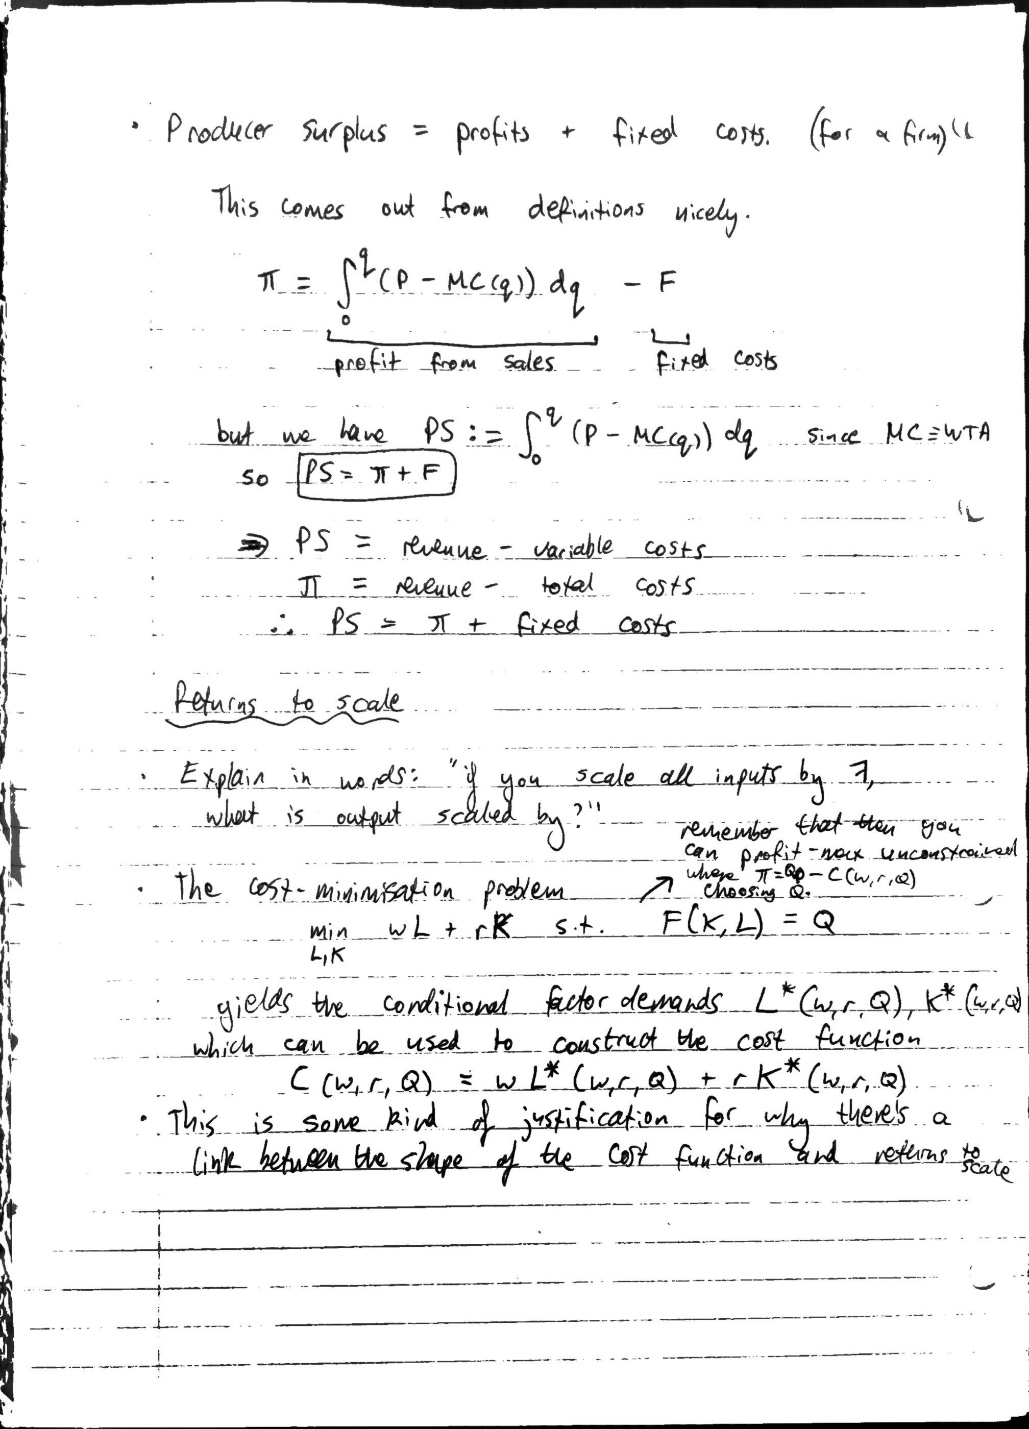 • Producer surplus = profits + fixed costs. (for a firm)
This comes out from definitions nicely.
π = ∫₀^q (P - MC(q)) dq - F
profit from sales fixed costs
but we have PS := ∫₀^q (P - MC(q)) dq since MC ≡ WTA
so PS = π + F
⇒ PS = revenue - variable costs
π = revenue - total costs
∴ PS = π + fixed costs
Returns to scale
• Explain in words: "if you scale all inputs by λ,
what is output scaled by?"
remember that then you
can profit-max unconstrained
where π = Qp - C(w,r,Q)
choosing Q.
• The cost-minimisation problem ↗
min wL + rK s.t. F(K,L) = Q
L,K
yields the conditional factor demands L*(w,r,Q), K*(w,r,Q)
which can be used to construct the cost function
C(w,r,Q) = wL*(w,r,Q) + rK*(w,r,Q)
• This is some kind of justification for why there's a
link between the shape of the cost function and returns to scale